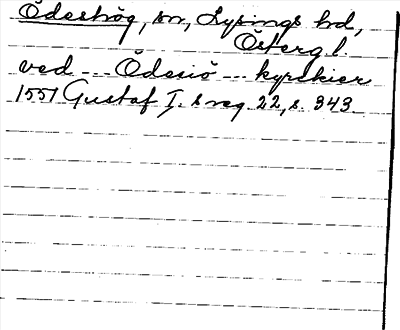 Ödeshög, sn, Lysings hd,
Östergl.
ved --- Ödesiö --- kyrckier
1551 Gustaf I:s reg. 22, s. 343.